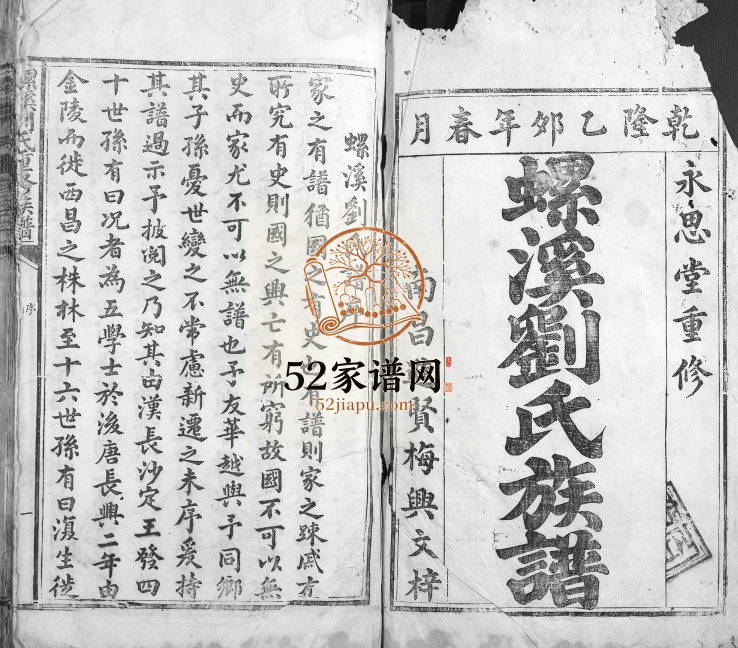 乾隆乙夘年春月
永思堂重修
螺溪劉氏族譜
南昌 賢梅興文梓
螺溪劉氏 譜序
家之有譜猶國之有史也 有譜則家之踈戚方
所究有史則國之興亡有所窮故國不可以無
史而家尤不可以無譜也予友華越與予同鄉
其子孫憂世變之不常慮新遷之未序爰持
其譜過示予披閱之乃知其由漢長沙定王發四
十世孫有曰况者為五學士於後唐長興二年由
金陵而徙西昌之株林至十六世孫有曰復生徙
螺溪劉氏重修族譜
序
一
52家谱网
52jiapu.com